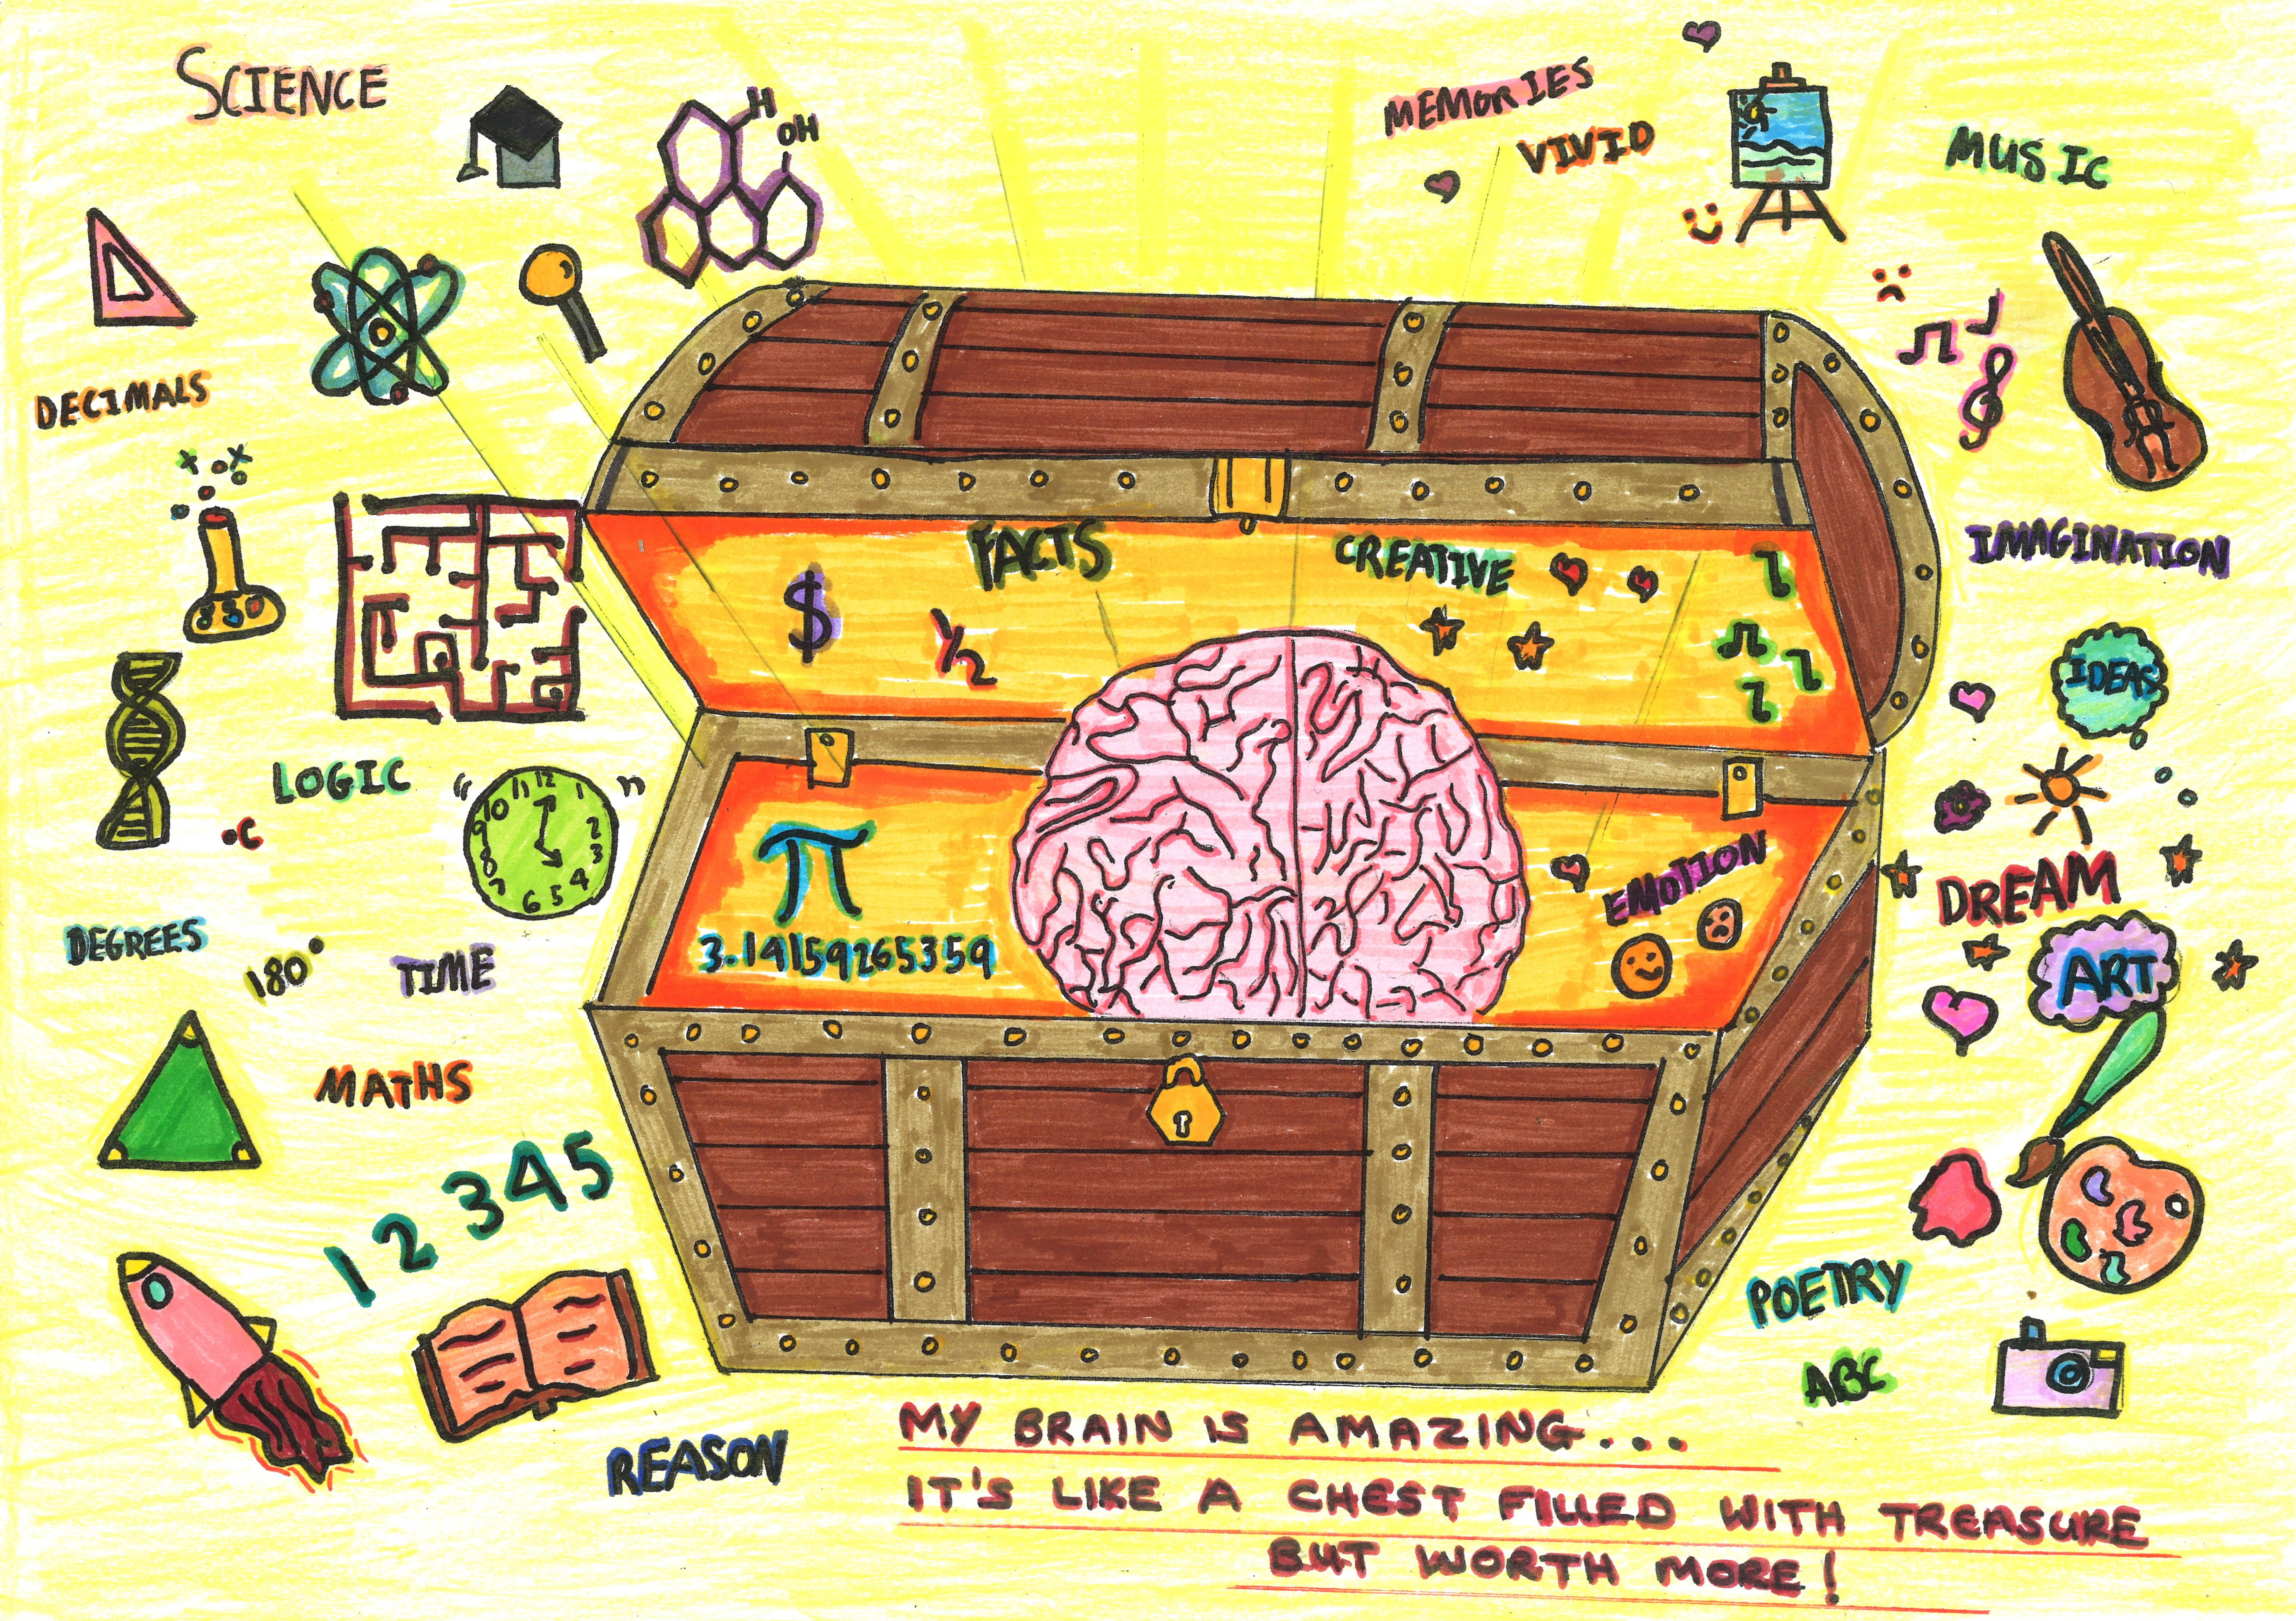 SCIENCE
H
OH
MEMORIES
VIVID
MUSIC
DECIMALS
FACTS
CREATIVE
IMAGINATION
$
1/2
IDEAS
LOGIC
12 1 2 3 4 5 6 7 8 9 10 11
°C
π
EMOTION
DREAM
3.14159265359
DEGREES
180°
TIME
ART
MATHS
1 2 3 4 5
POETRY
ABC
REASON
MY BRAIN IS AMAZING...
IT'S LIKE A CHEST FILLED WITH TREASURE
BUT WORTH MORE!